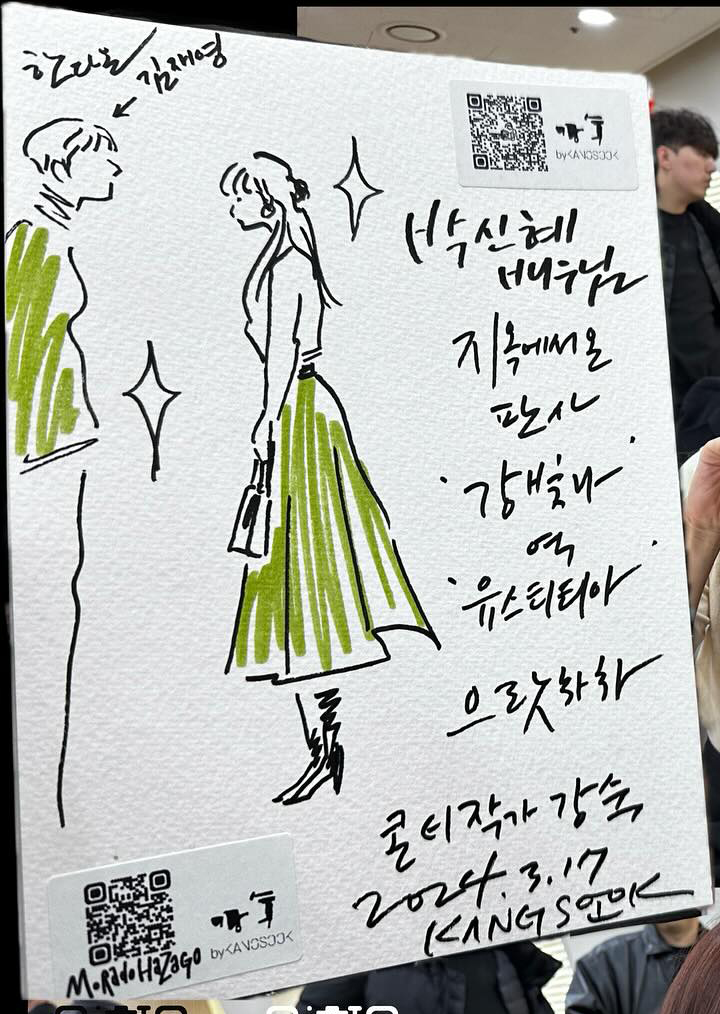 한다온/김재영
강숙
byKANGSOOK
박신혜
배우님
지옥에서온
판사
'강빛나'
역
'유스티티아'
으랏차차
콜티작가 강숙
2024.3.17
KANGSOOK
강숙
byKANGSOOK
MoRadoHaZaGo